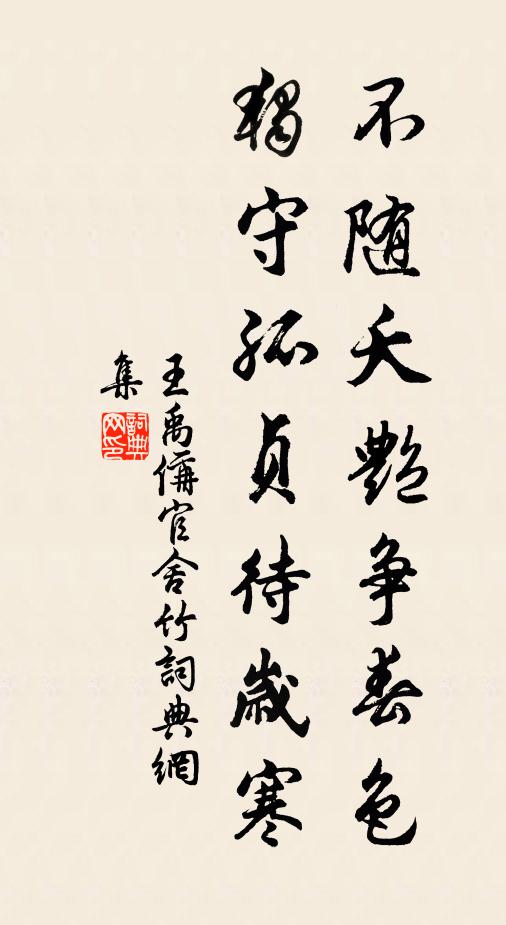 不随夭艷争春色
獨守孤貞待歲寒
王禹偁官舍竹詞典網
集
詞典
网印